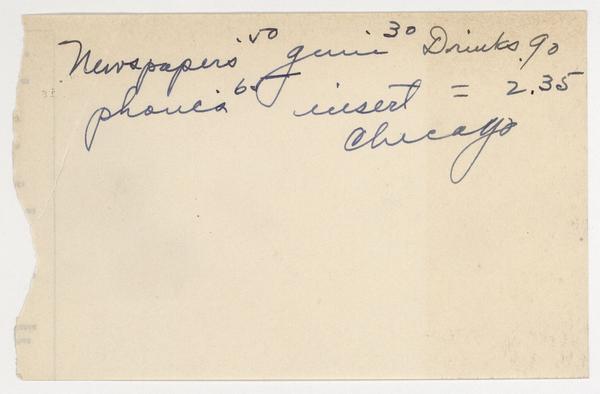 Newspapers .50 gum 30 Drinks .90
phones 60 insert = 2.35
Chicago